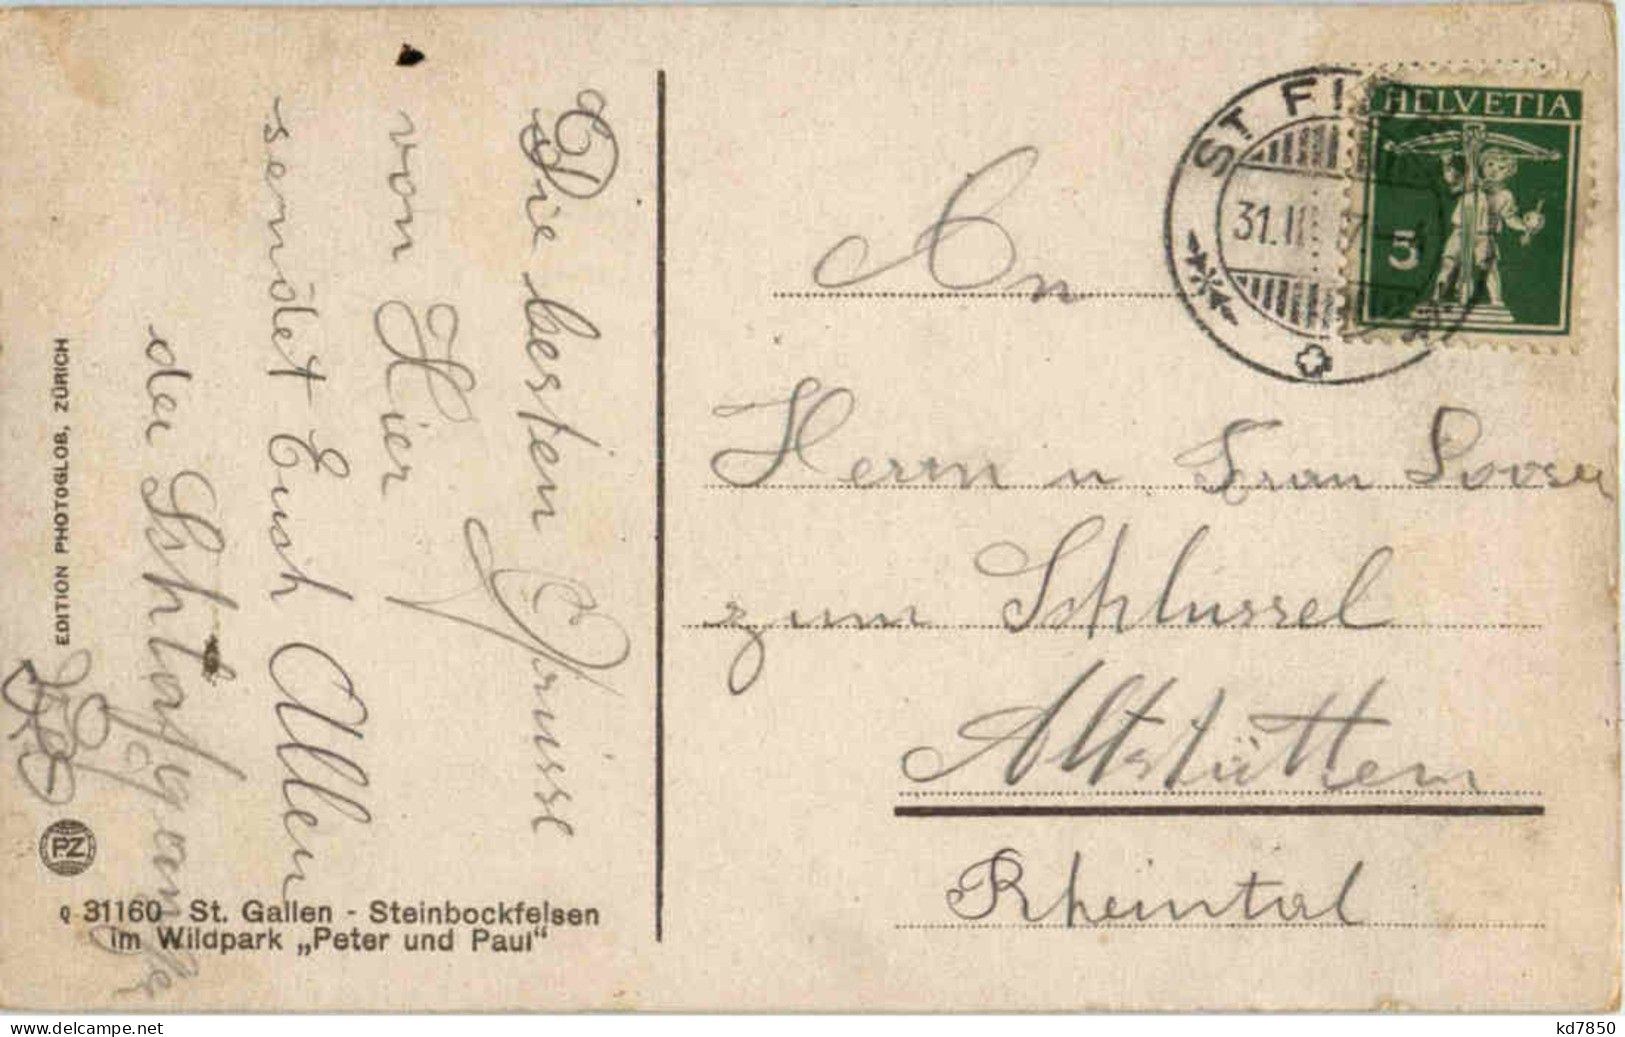 Die besten Grüsse
von Hier
sendet Euch Allen
der
EDITION PHOTOGLOB, ZÜRICH
PZ
31160 St. Gallen - Steinbockfelsen
im Wildpark „Peter und Paul“
ST. FI
31. II
HELVETIA
5
An
Herrn u Frau Looser
zum Schlüssel
Altstätten
Rheintal
kd7850
www.delcampe.net